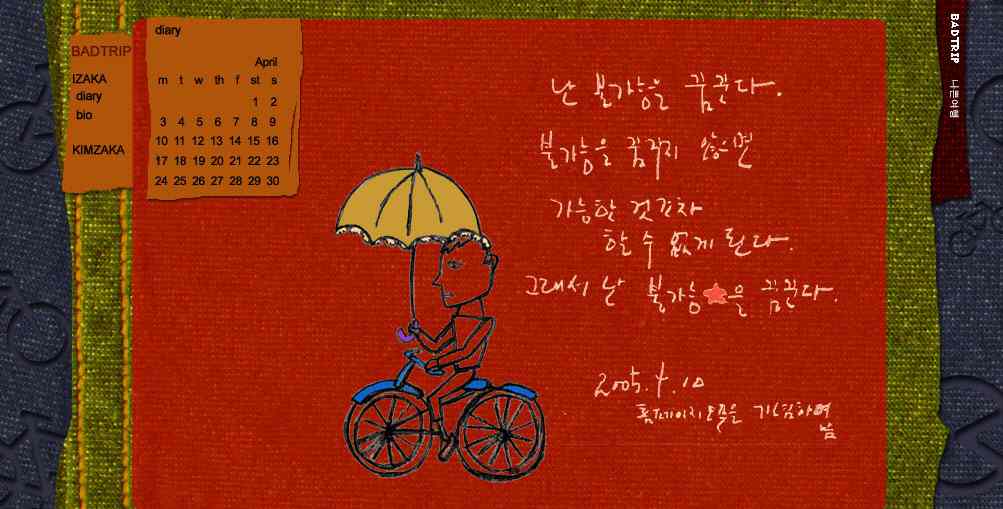 BADTRIP
IZAKA
diary
bio
KIMZAKA
diary
April
m t w th f st s
1 2
3 4 5 6 7 8 9
10 11 12 13 14 15 16
17 18 19 20 21 22 23
24 25 26 27 28 29 30
난 불가능을 꿈꾼다.
불가능을 꿈꾸지 않으면
가능한 것조차
할 수 없게 된다.
그래서 난 불가능을 꿈꾼다.
2005.4.10
홈페이지 오픈을 기념하며
BADTRIP 나쁜여행